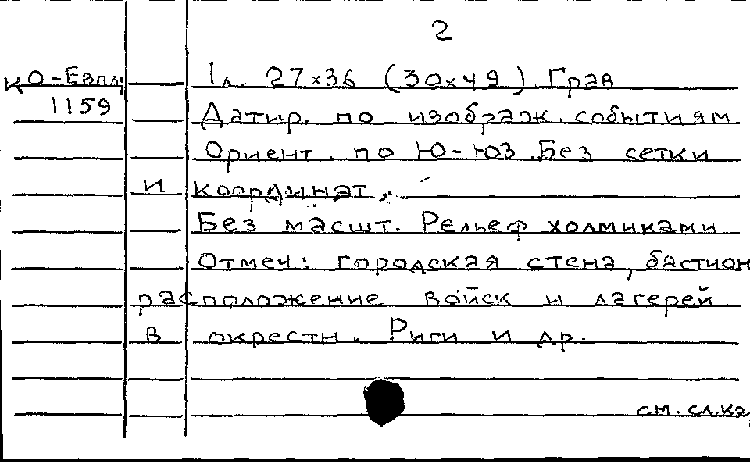 2
КО-Евпл 1л. 27×36 (30×49). Грав
1159 Датир. по изображ. событиям
Ориент. по Ю-ЮЗ. Без сетки
и координат.
Без масшт. Рельеф холмиками
Отмеч: городская стена, бастион
расположение войск и лагерей
в окрестн. Риги и др.
см. сл. к